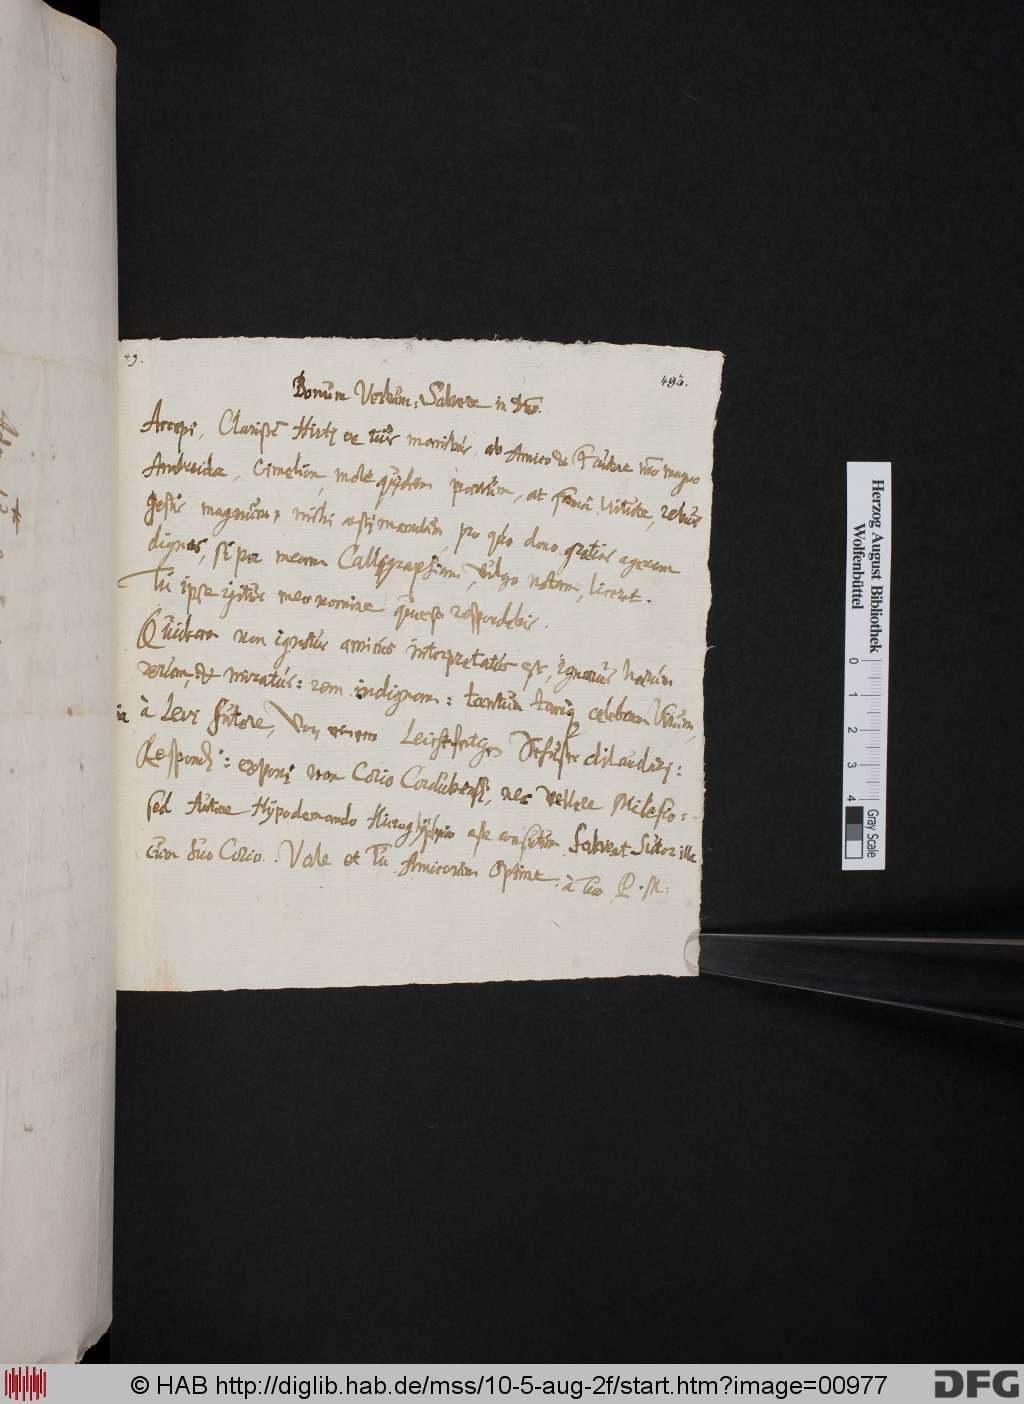 49.
495.
Bonum Verbum: Salvere in Deo.
Accepi, Clariss: Hirtj ex tuis manibus, ab Amico & Fautore meo magno
Andreida, Cimelion, mole quidem parvum, at fama Virtute, rebus
gestis magnum, mihi aestimandum, pro quo dono gratias agerem
dignas, si per meam Calligraphiam, vulgo notam, liceret.
Tu ipse igitur meo nomine quaeso respondebis.
Quidam non ignotus amicus interpretatus est, ignarus harum
rerum, & miratus: rem indignam: tantum tamq celebrem Virum,
à Levi Sutore, Von einem Leichtfertigen Schuster dilaudari:
Respondi: exponi non Corio Cordubensi, nec vellere Milesio:
sed Autore Hypodemando Hieroglyphico esse consutum. Salveat Sutor ille
cum suo Corio. Vale et Tu Amicorum Optime. à Tuo P. M:
Herzog August Bibliothek
Wolfenbüttel
0 1 2 3 4
Gray Scale
© HAB http://diglib.hab.de/mss/10-5-aug-2f/start.htm?image=00977
DFG